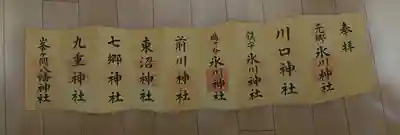 参拝
元郷氷川神社
川口神社
鎮守氷川神社
鳩ヶ谷氷川神社
前川神社
東沼神社
七郷神社
九重神社
峯ヶ岡八幡神社